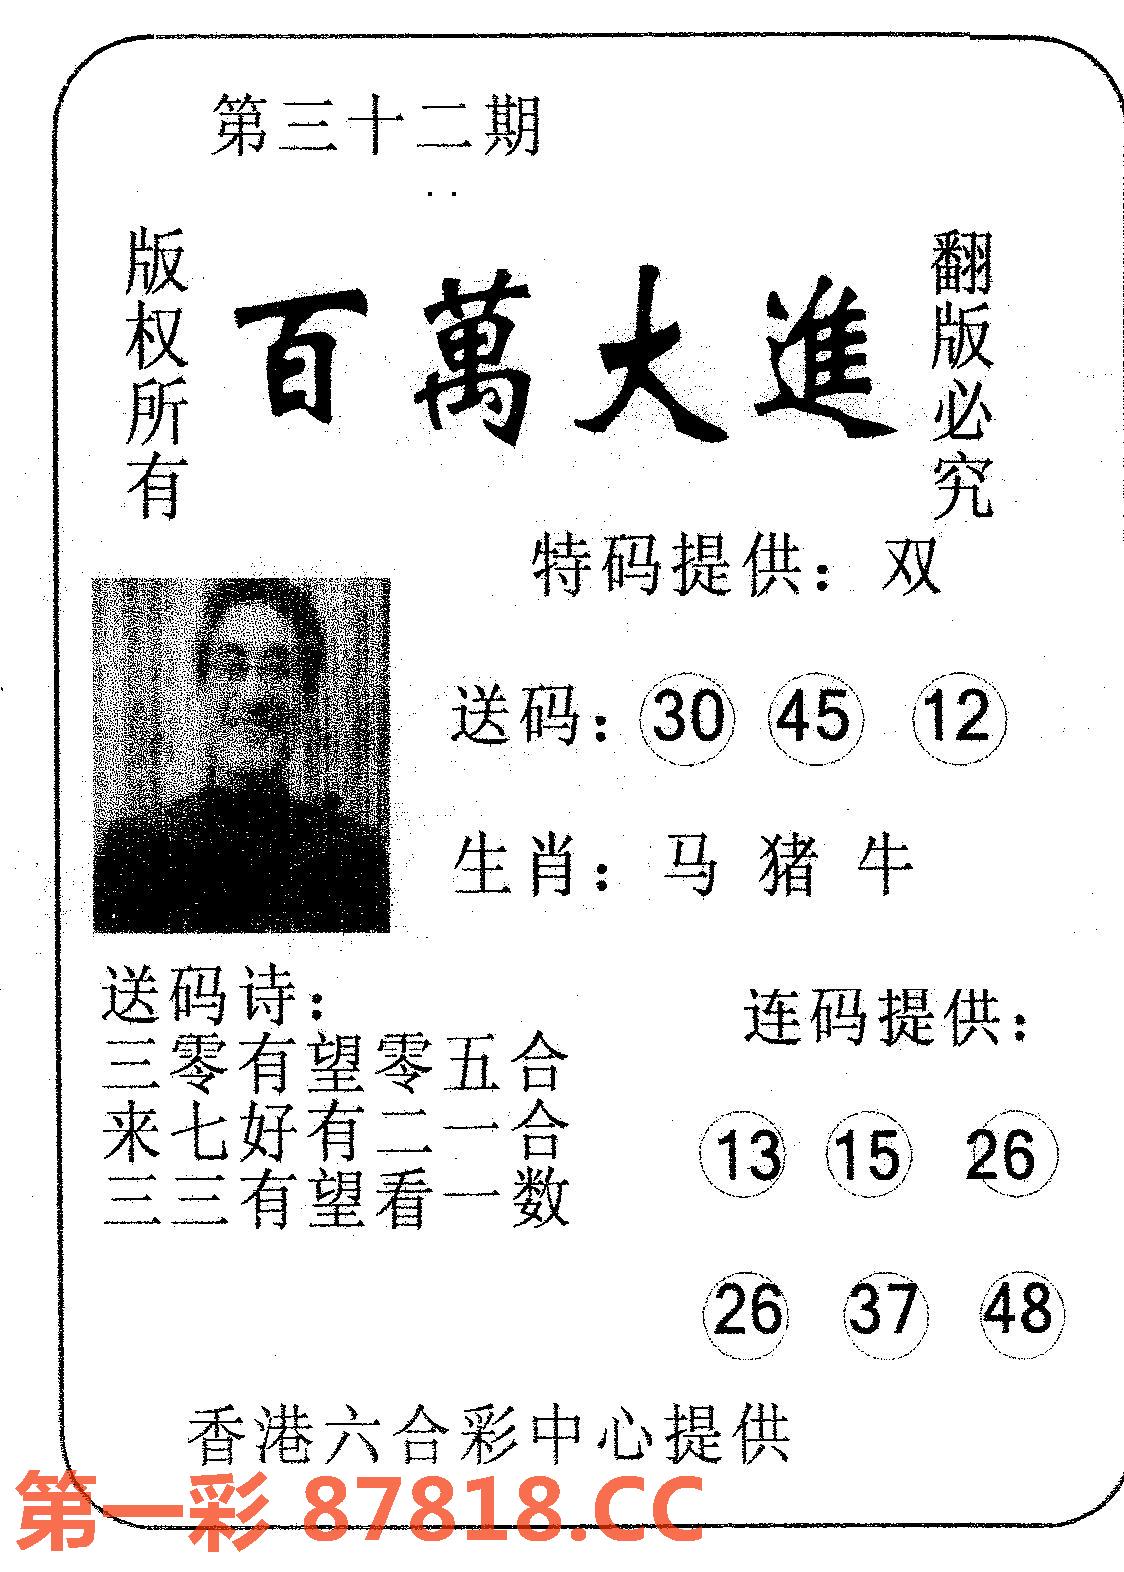 第三十二期
版权所有
百萬大進
翻版必究
特码提供：双
送码：30 45 12
生肖：马 猪 牛
送码诗：
三零有望零五合
来七好有二一合
三三有望看一数
连码提供：
13 15 26
26 37 48
香港六合彩中心提供
第一彩 87818.CC